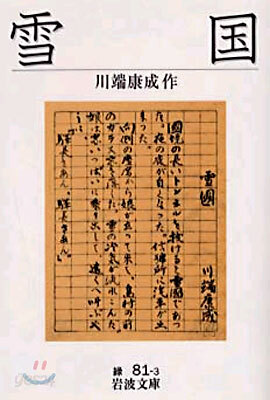 雪国
川端康成作
雪國
川端康成
國境の長いトンネルを抜けると雪國であつ
た。夜の底が白くなつた。信號所に汽車が止
まつた。
向側の座席から娘が立つて来て、島村の前
のガラス窓を落した。雪の冷気が流れこんだ。
娘は窓いつぱいに乗り出して、遠くへ叫ぶや
うに、
「驛長さあん、驛長さあん。」
緑 81-3
岩波文庫